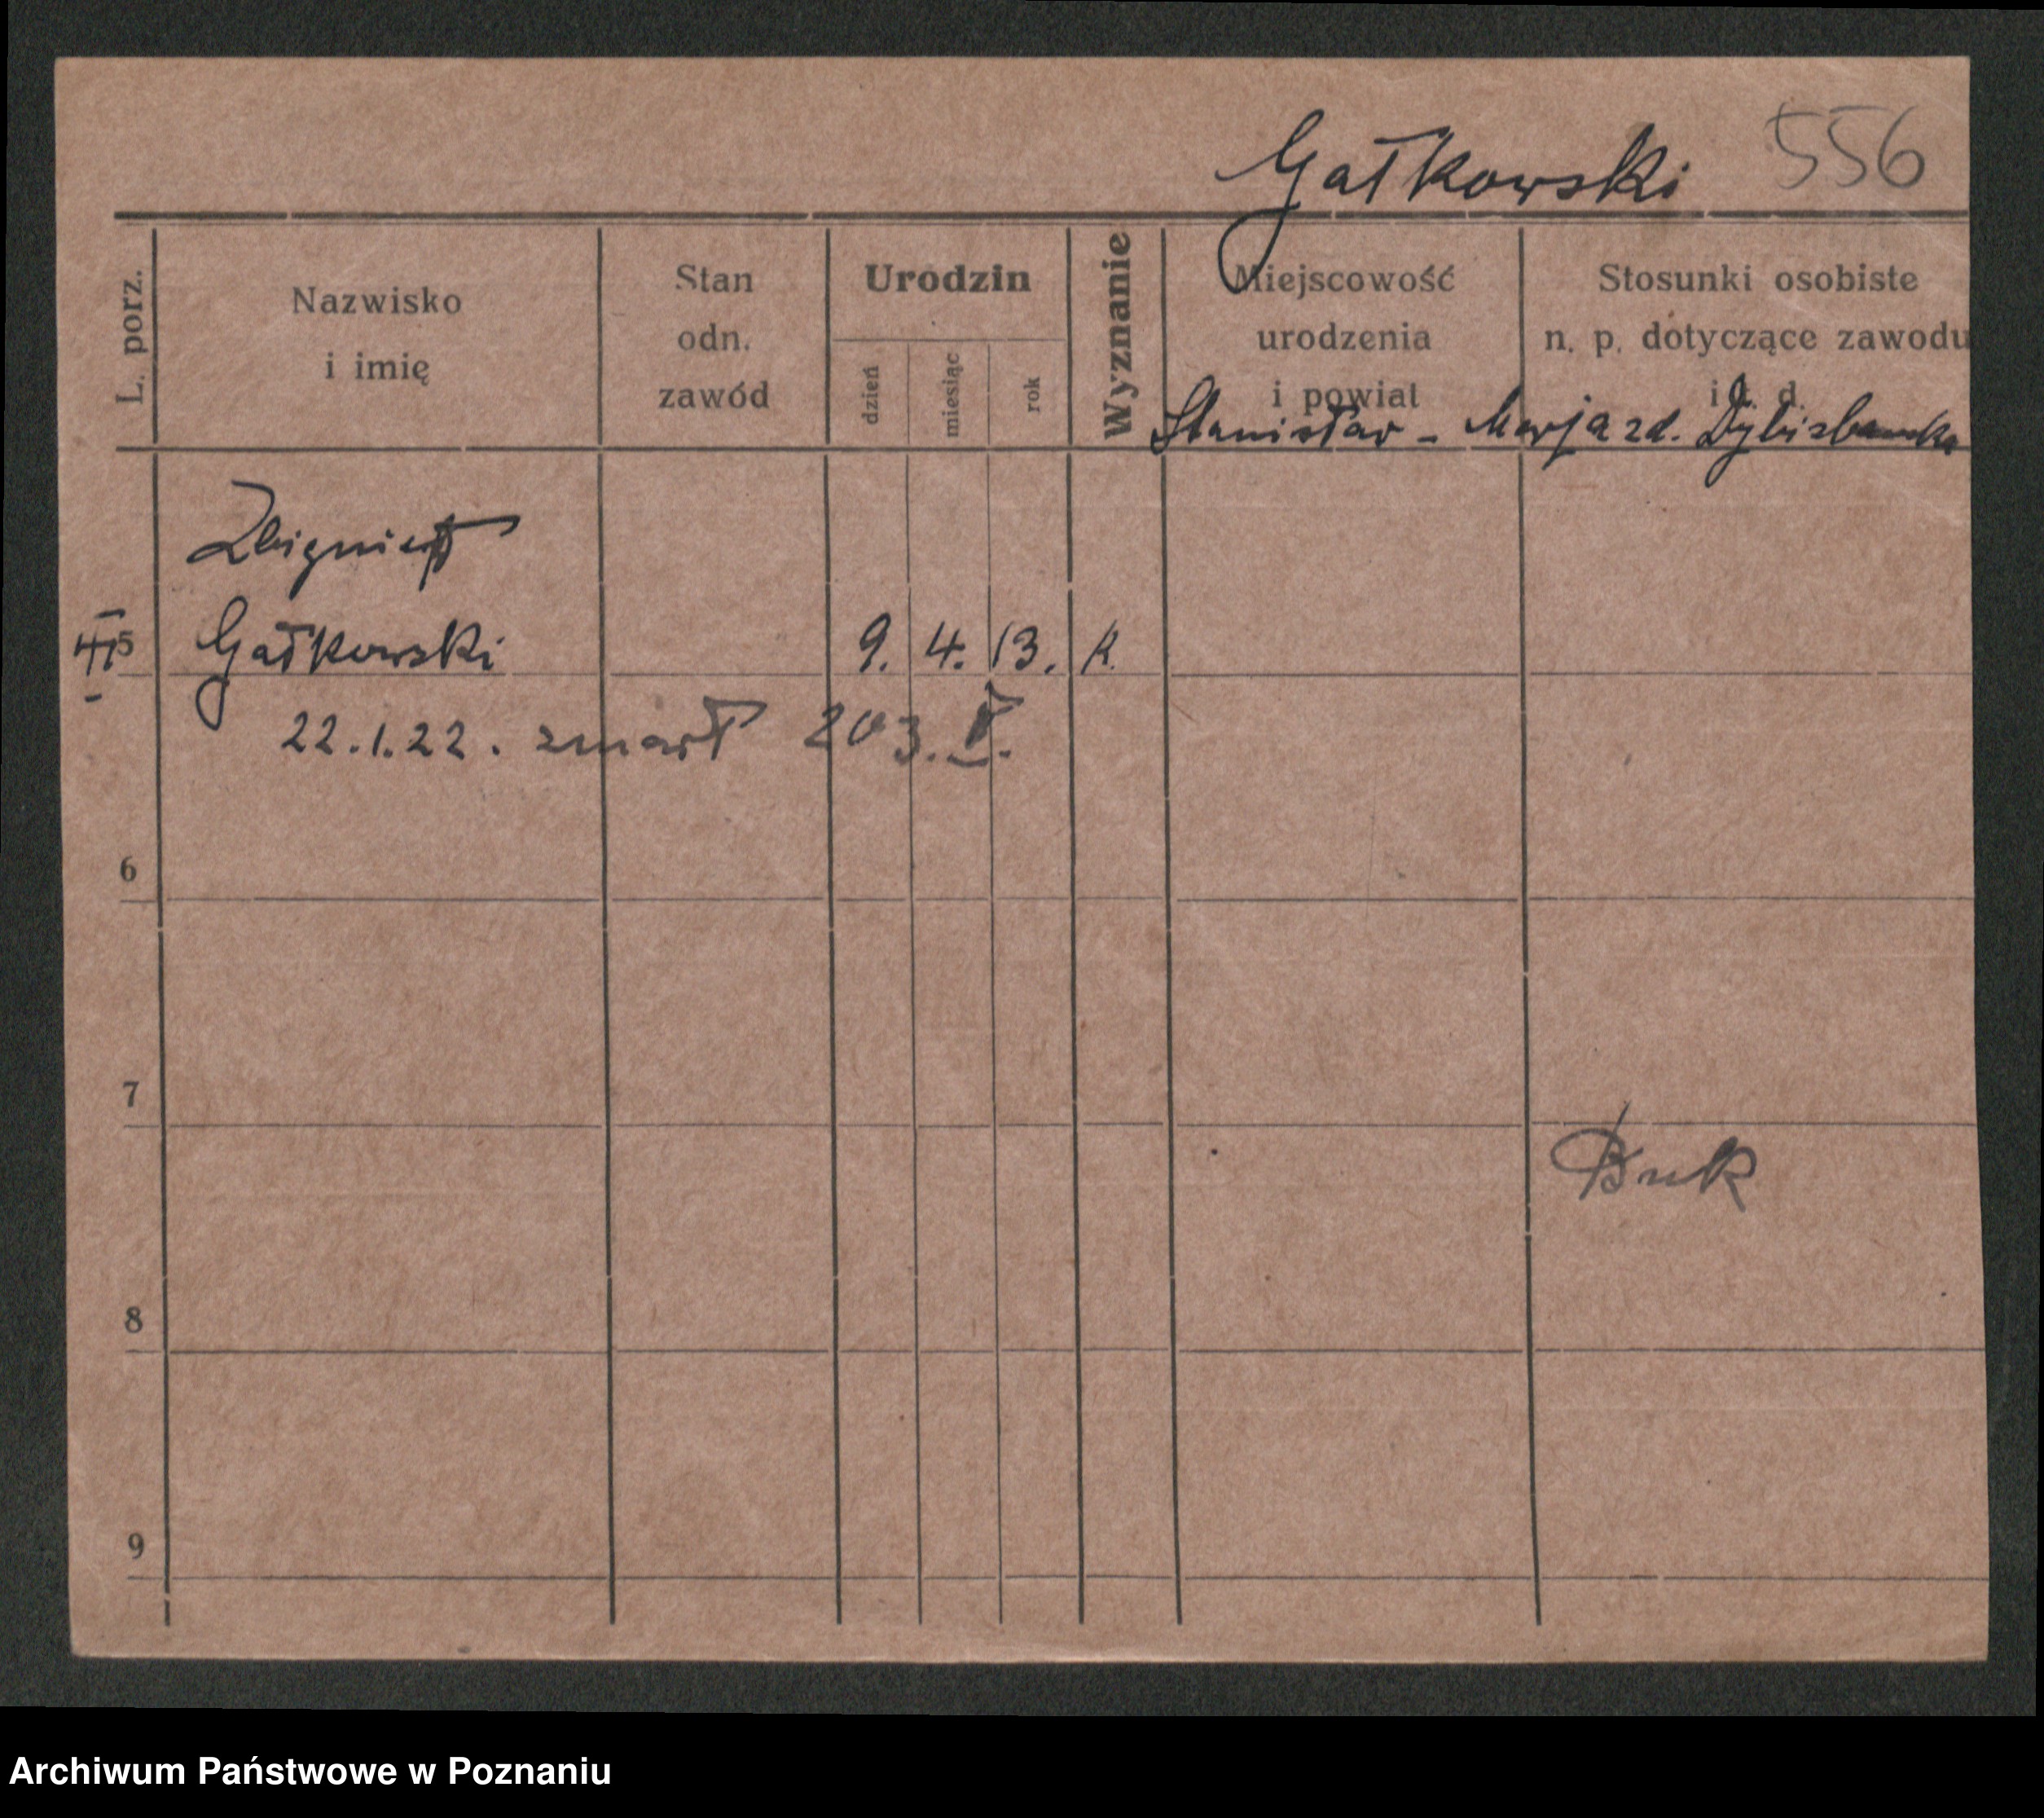 Gałkowski 556
L. porz.
Nazwisko
i imię
Stan
odn.
zawód
Urodzin
dzień
miesiąc
rok
Wyznanie
Miejscowość
urodzenia
i powiat
Stosunki osobiste
n. p. dotyczące zawodu
i t. d.
Stanisław - Marja zd.
Zbigniew
5 Gałkowski 9. 4. 13. k.
22.1.22. zmarł 203.
6
7
Buk
8
9
Archiwum Państwowe w Poznaniu